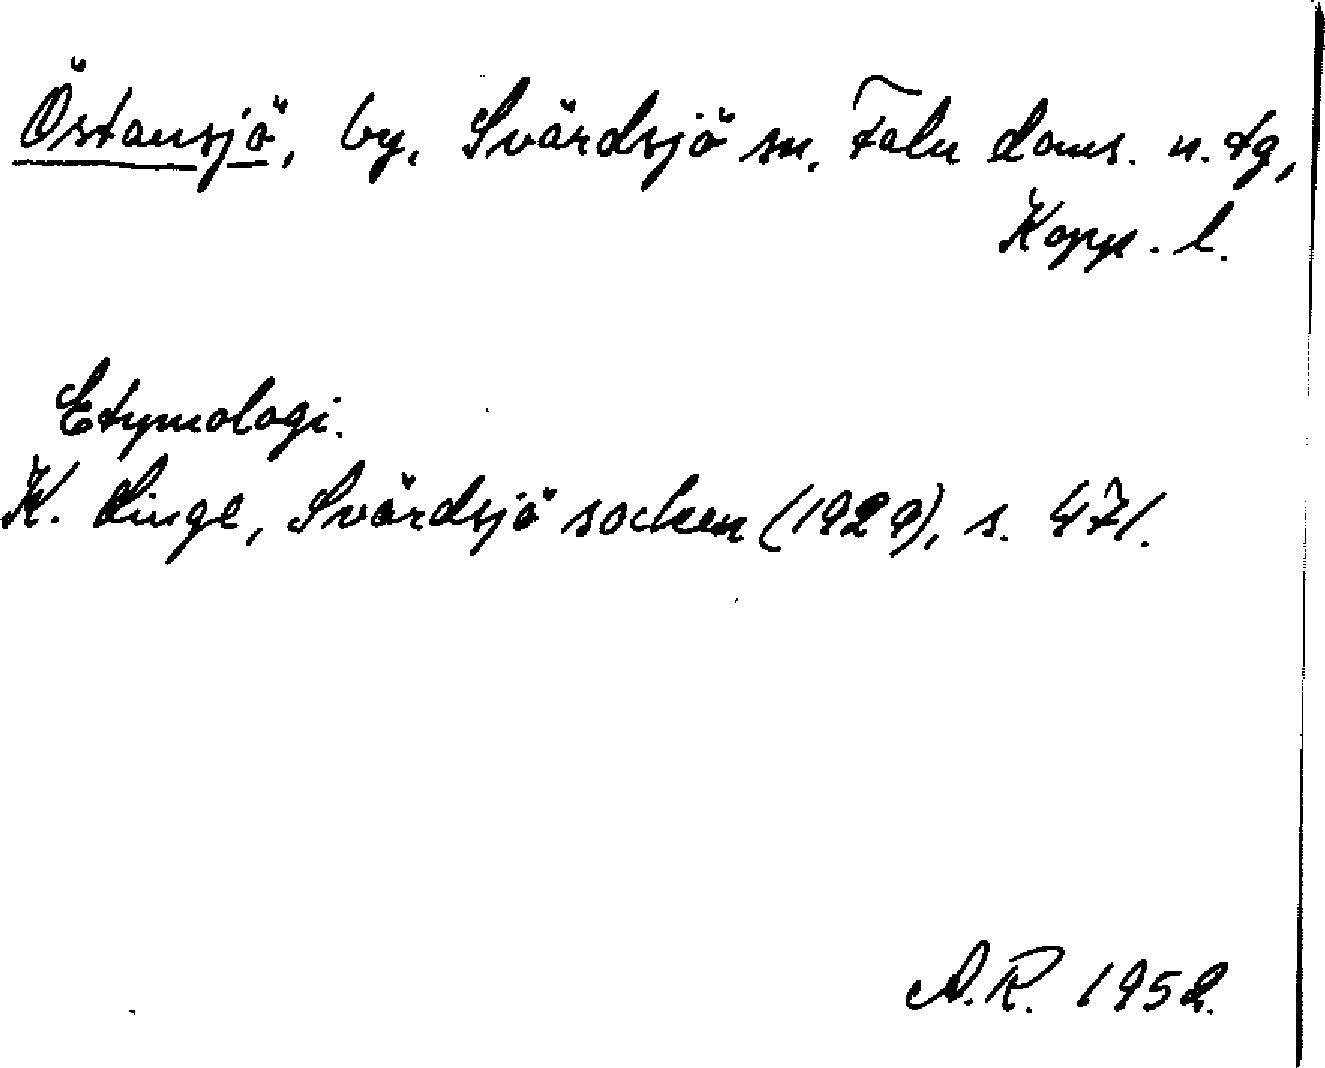 Östansjö, by, Svärdsjö sn, Falu doms. n. tg,
Kopp. l.
Etymologi.
K. Linge, Svärdsjö socken (1929), s. 471.
A.R. 1952.